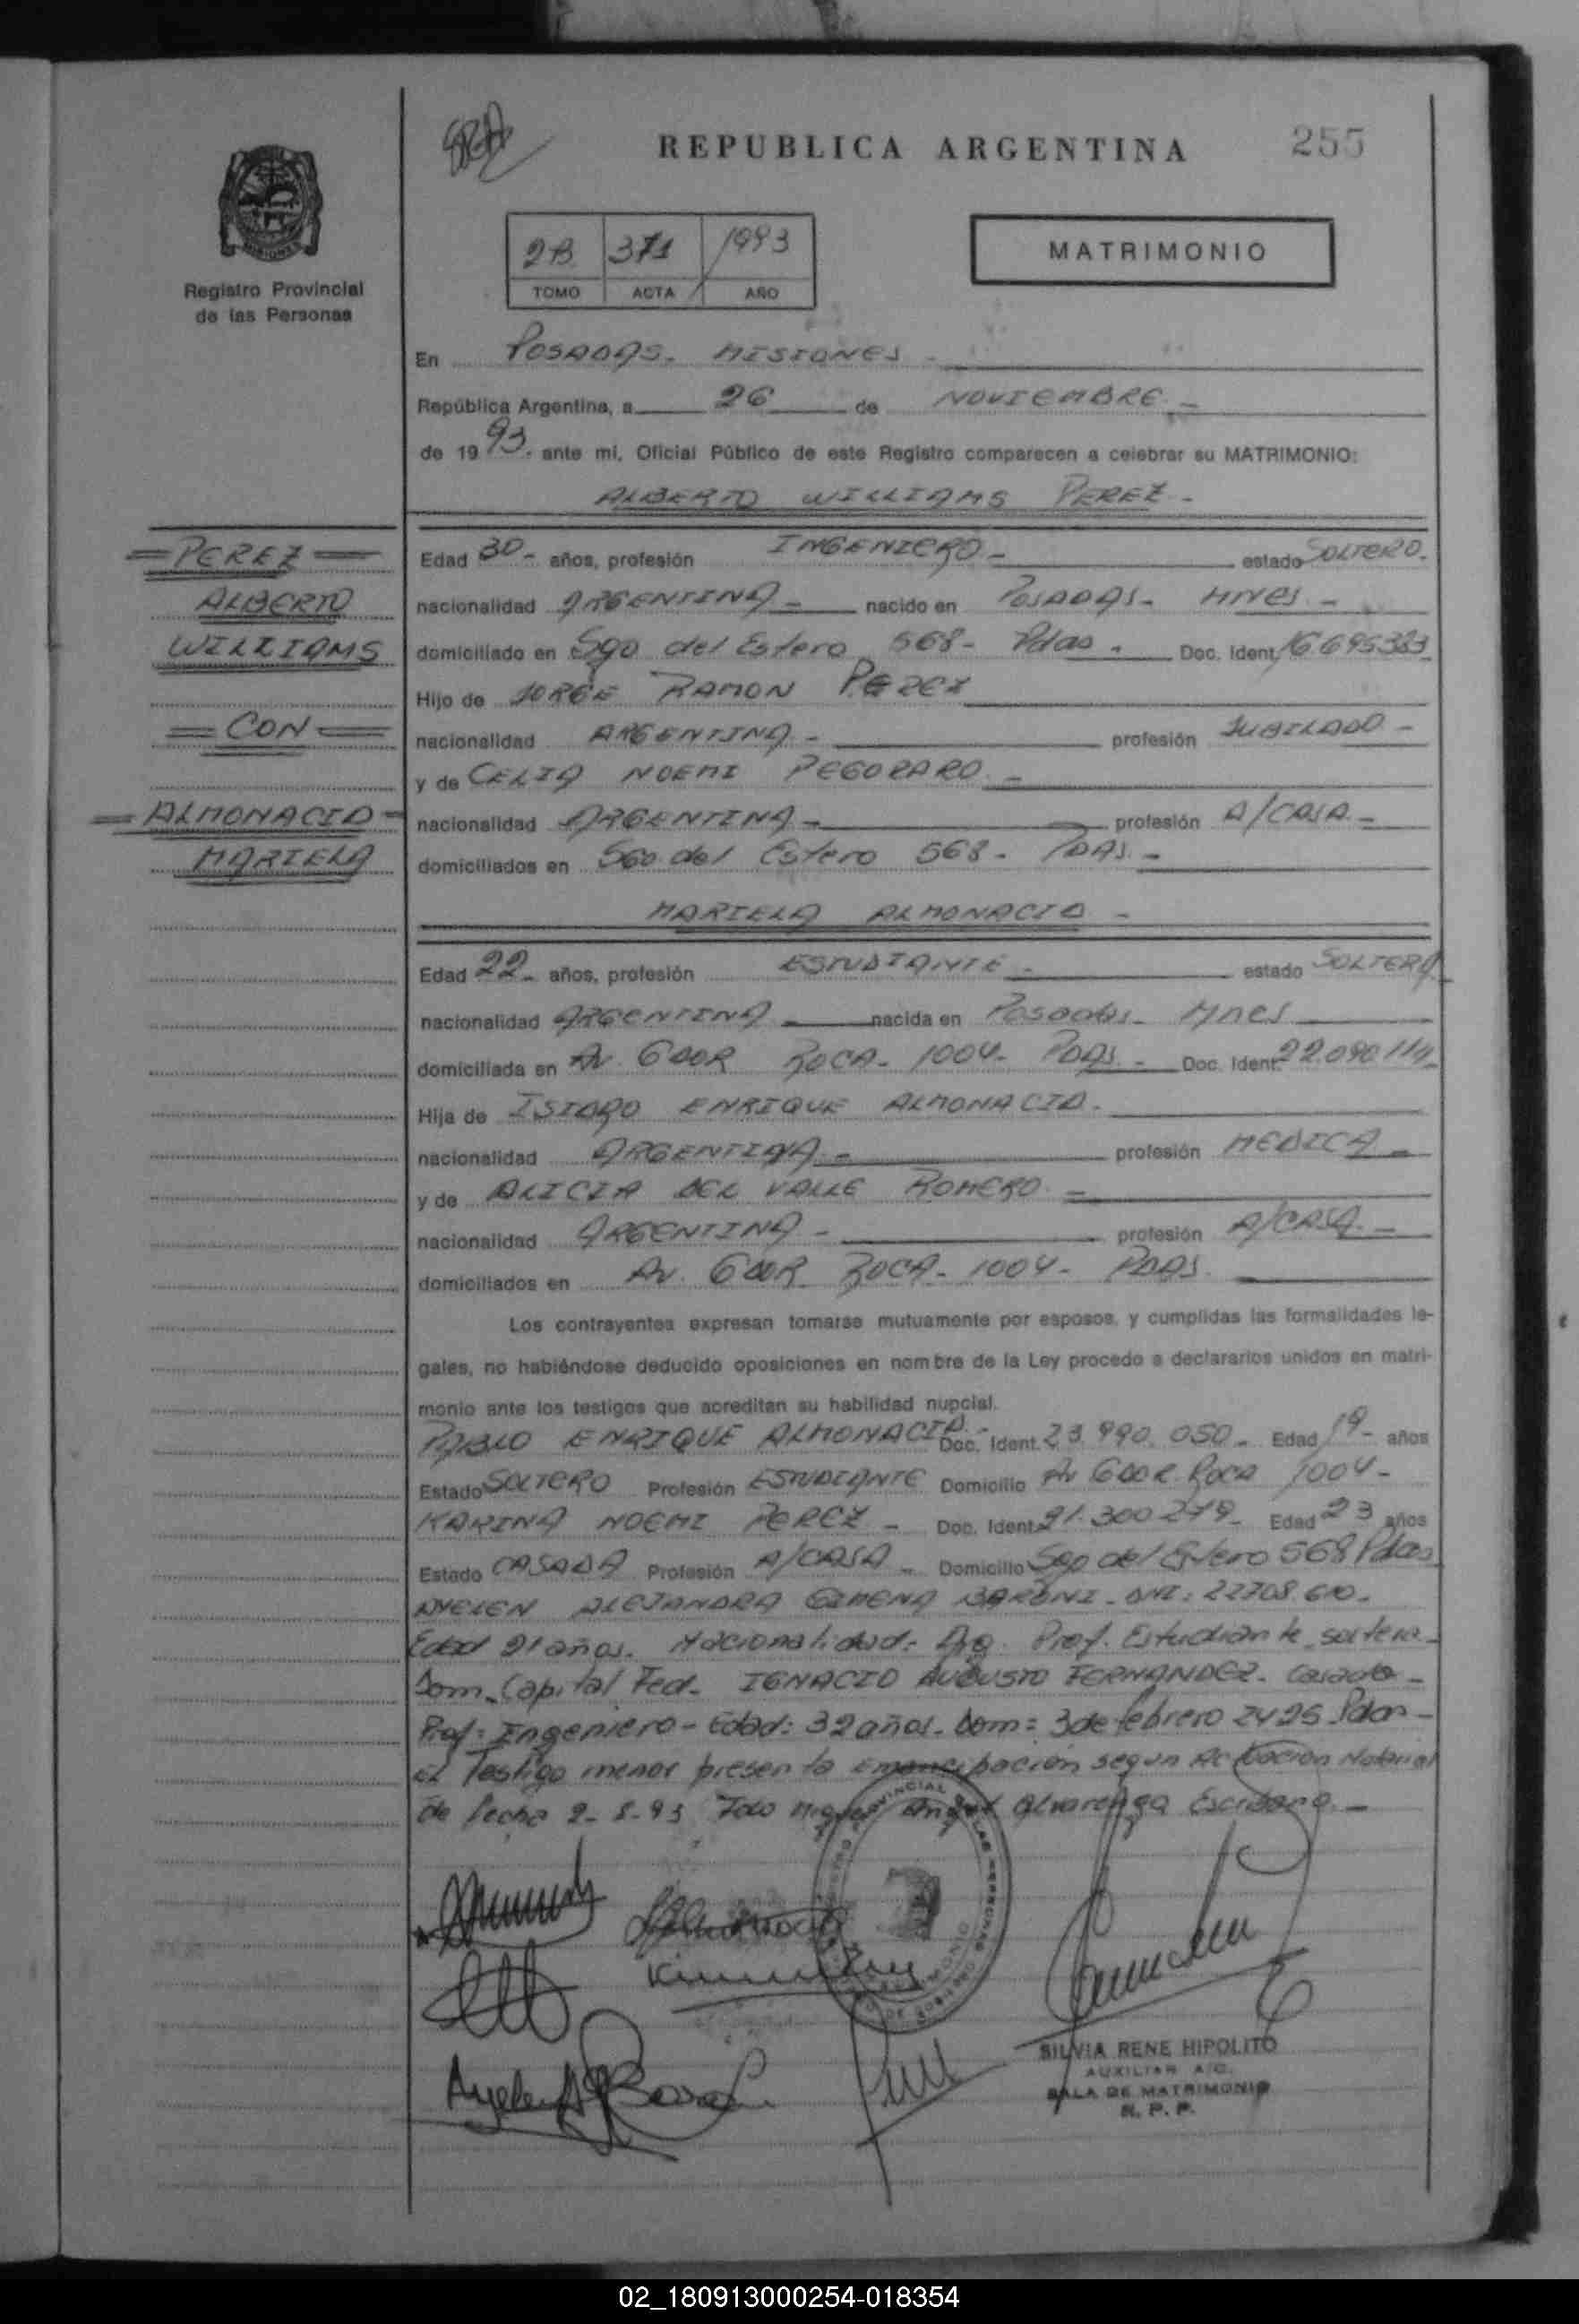 REPUBLICA ARGENTINA
255
2B 371 1993
TOMO ACTA AÑO
MATRIMONIO
Registro Provincial
de las Personas
En POSADAS. MISIONES -
República Argentina, a 26 de NOVIEMBRE -
de 19 93. ante mi, Oficial Público de este Registro comparecen a celebrar su MATRIMONIO:
ALBERTO WILLIAMS PEREZ -
PEREZ
ALBERTO
WILLIAMS
CON
ALMONACID
MARIELA
Edad 30- años, profesión INGENIERO - estado SOLTERO.
nacionalidad ARGENTINA - nacido en POSADAS- MNES -
domiciliado en Sgo del Estero 568- Pdas. Doc. Ident. 16695383
Hijo de JORGE RAMON PEREZ
nacionalidad ARGENTINA - profesión JUBILADO -
y de CELIA NOEMI PEGORARO. -
nacionalidad ARGENTINA - profesión A/CASA -
domiciliados en Sgo del Estero 568- PDAS. -
MARIELA ALMONACID -
Edad 22- años, profesión ESTUDIANTE - estado SOLTERA
nacionalidad ARGENTINA nacida en Posadas- Mnes
domiciliada en Av. GDOR ROCA- 1004- PDAS - Doc. Ident. 22.090.114
Hija de ISIDRO ENRIQUE ALMONACID.
nacionalidad ARGENTINA - profesión MEDICA -
y de ALICIA DEL VALLE ROMERO -
nacionalidad ARGENTINA - profesión A/CASA -
domiciliados en Av. GDOR ROCA- 1004- PDAS.
Los contrayentes expresan tomarse mutuamente por esposos, y cumplidas las formalidades le-
gales, no habiéndose deducido oposiciones en nombre de la Ley procedo a declararlos unidos en matri-
monio ante los testigos que acreditan su habilidad nupcial.
PABLO ENRIQUE ALMONACID - Doc. Ident. 23.990.050- Edad 19- años
Estado SOLTERO Profesión ESTUDIANTE Domicilio Av GDOR. ROCA 1004-
KARINA NOEMI PEREZ - Doc. Ident. 21.300.279- Edad 23 años
Estado CASADA Profesión A/CASA - Domicilio Sgo del Estero 568 Pdas
AYELEN ALEJANDRA GIMENA BARONI - DNI: 22708.610.
Edad 21 años. Nacionalidad- Arg. Prof. Estudiante, soltera-
Dom- Capital Fed. IGNACIO AUGUSTO FERNANDEZ. Casado -
Prof: Ingeniero - Edad: 32 años. Dom: 3 de febrero 2425 Pdas -
El Testigo menor presenta Emancipación según Actuación Notarial
de fecha 2-8-93 Fdo Miguel Angel Alvarenga Escribano. -
Ayelen
SILVIA RENE HIPOLITO
AUXILIAR A/C.
SALA DE MATRIMONIO
R. P. P.
02_180913000254-018354